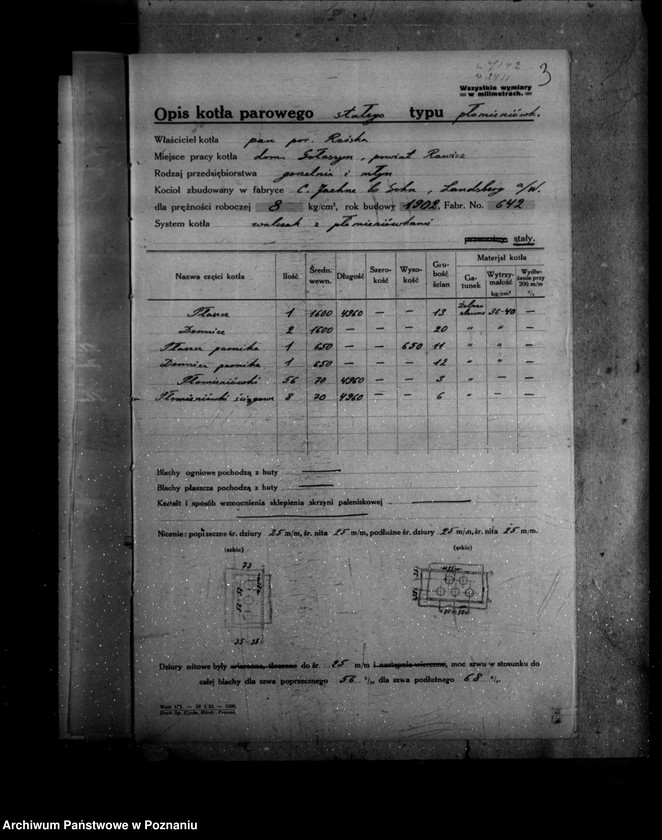 3
Wszystkie wymiary
w milimetrach.
Opis kotła parowego stałego typu płomieniówk.
Właściciel kotła pan por. Raóska
Miejsce pracy kotła dom. Gołaszyn, powiat Rawicz
Rodzaj przedsiębiorstwa gorzelnia i młyn
Kocioł zbudowany w fabryce C. Jaehne & Sohn, Landsberg a/W.
dla prężności roboczej 8 kg/cm², rok budowy 1902, Fabr. No. 642
System kotła walczak z płomieniówkami
stały.
Nazwa części kotła Ilość Średn. wewn. Długość Szerokość Wysokość Grubość ścian Materjał kotła
Gatunek Wytrzymałość kg/cm² Wydłużenie przy 200 m/m %
Płaszcz 1 1600 4960 — — 13 36-40 —
Dennice 2 1600 — — — 20 " " —
Płaszcz parnika 1 650 — — 650 11 " " —
Dennica parnika 1 650 — — — 12 " " —
Płomieniówki 56 70 4960 — — 3 " — —
Płomieniówki ściągowe 8 70 4960 — — 6 " — —
Blachy ogniowe pochodzą z huty
Blachy płaszcza pochodzą z huty
Kształt i sposób wzmocnienia sklepienia skrzyni paleniskowej
Nicenie: poprzeczne śr. dziury 25 m/m, śr. nita 25 m/m, podłużne śr. dziury 25 m/m, śr. nita 25 m/m.
(szkic) (szkic)
73
35 35
Dziury nitowe były wiercone, tłoczone do śr. 25 m/m i następnie wiercone, moc szwu w stosunku do
całej blachy dla szwa poprzecznego 56 %, dla szwa podłużnego 68 %.
Archiwum Państwowe w Poznaniu